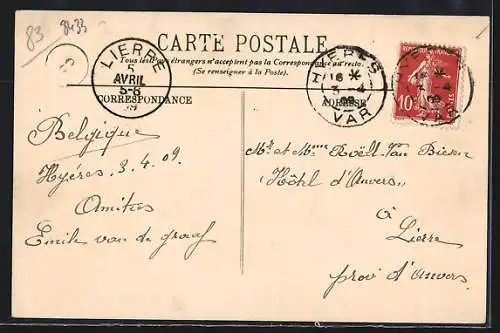 83
8433
CARTE POSTALE
Tous les Pays étrangers n'acceptent pas la Correspondance au recto.
(Se renseigner à la Poste).
LIERRE
5
AVRIL
5-6
HYERES
3-4
VAR
10
CORRESPONDANCE
ADRESSE
Belgique
Hyéres. 3.4.09.
Amitiés
Emile van de graaf
Mr et Mme Roëll-Van Bienen
"Hôtel d'Anvers"
à
Lierre
prov d'Anvers